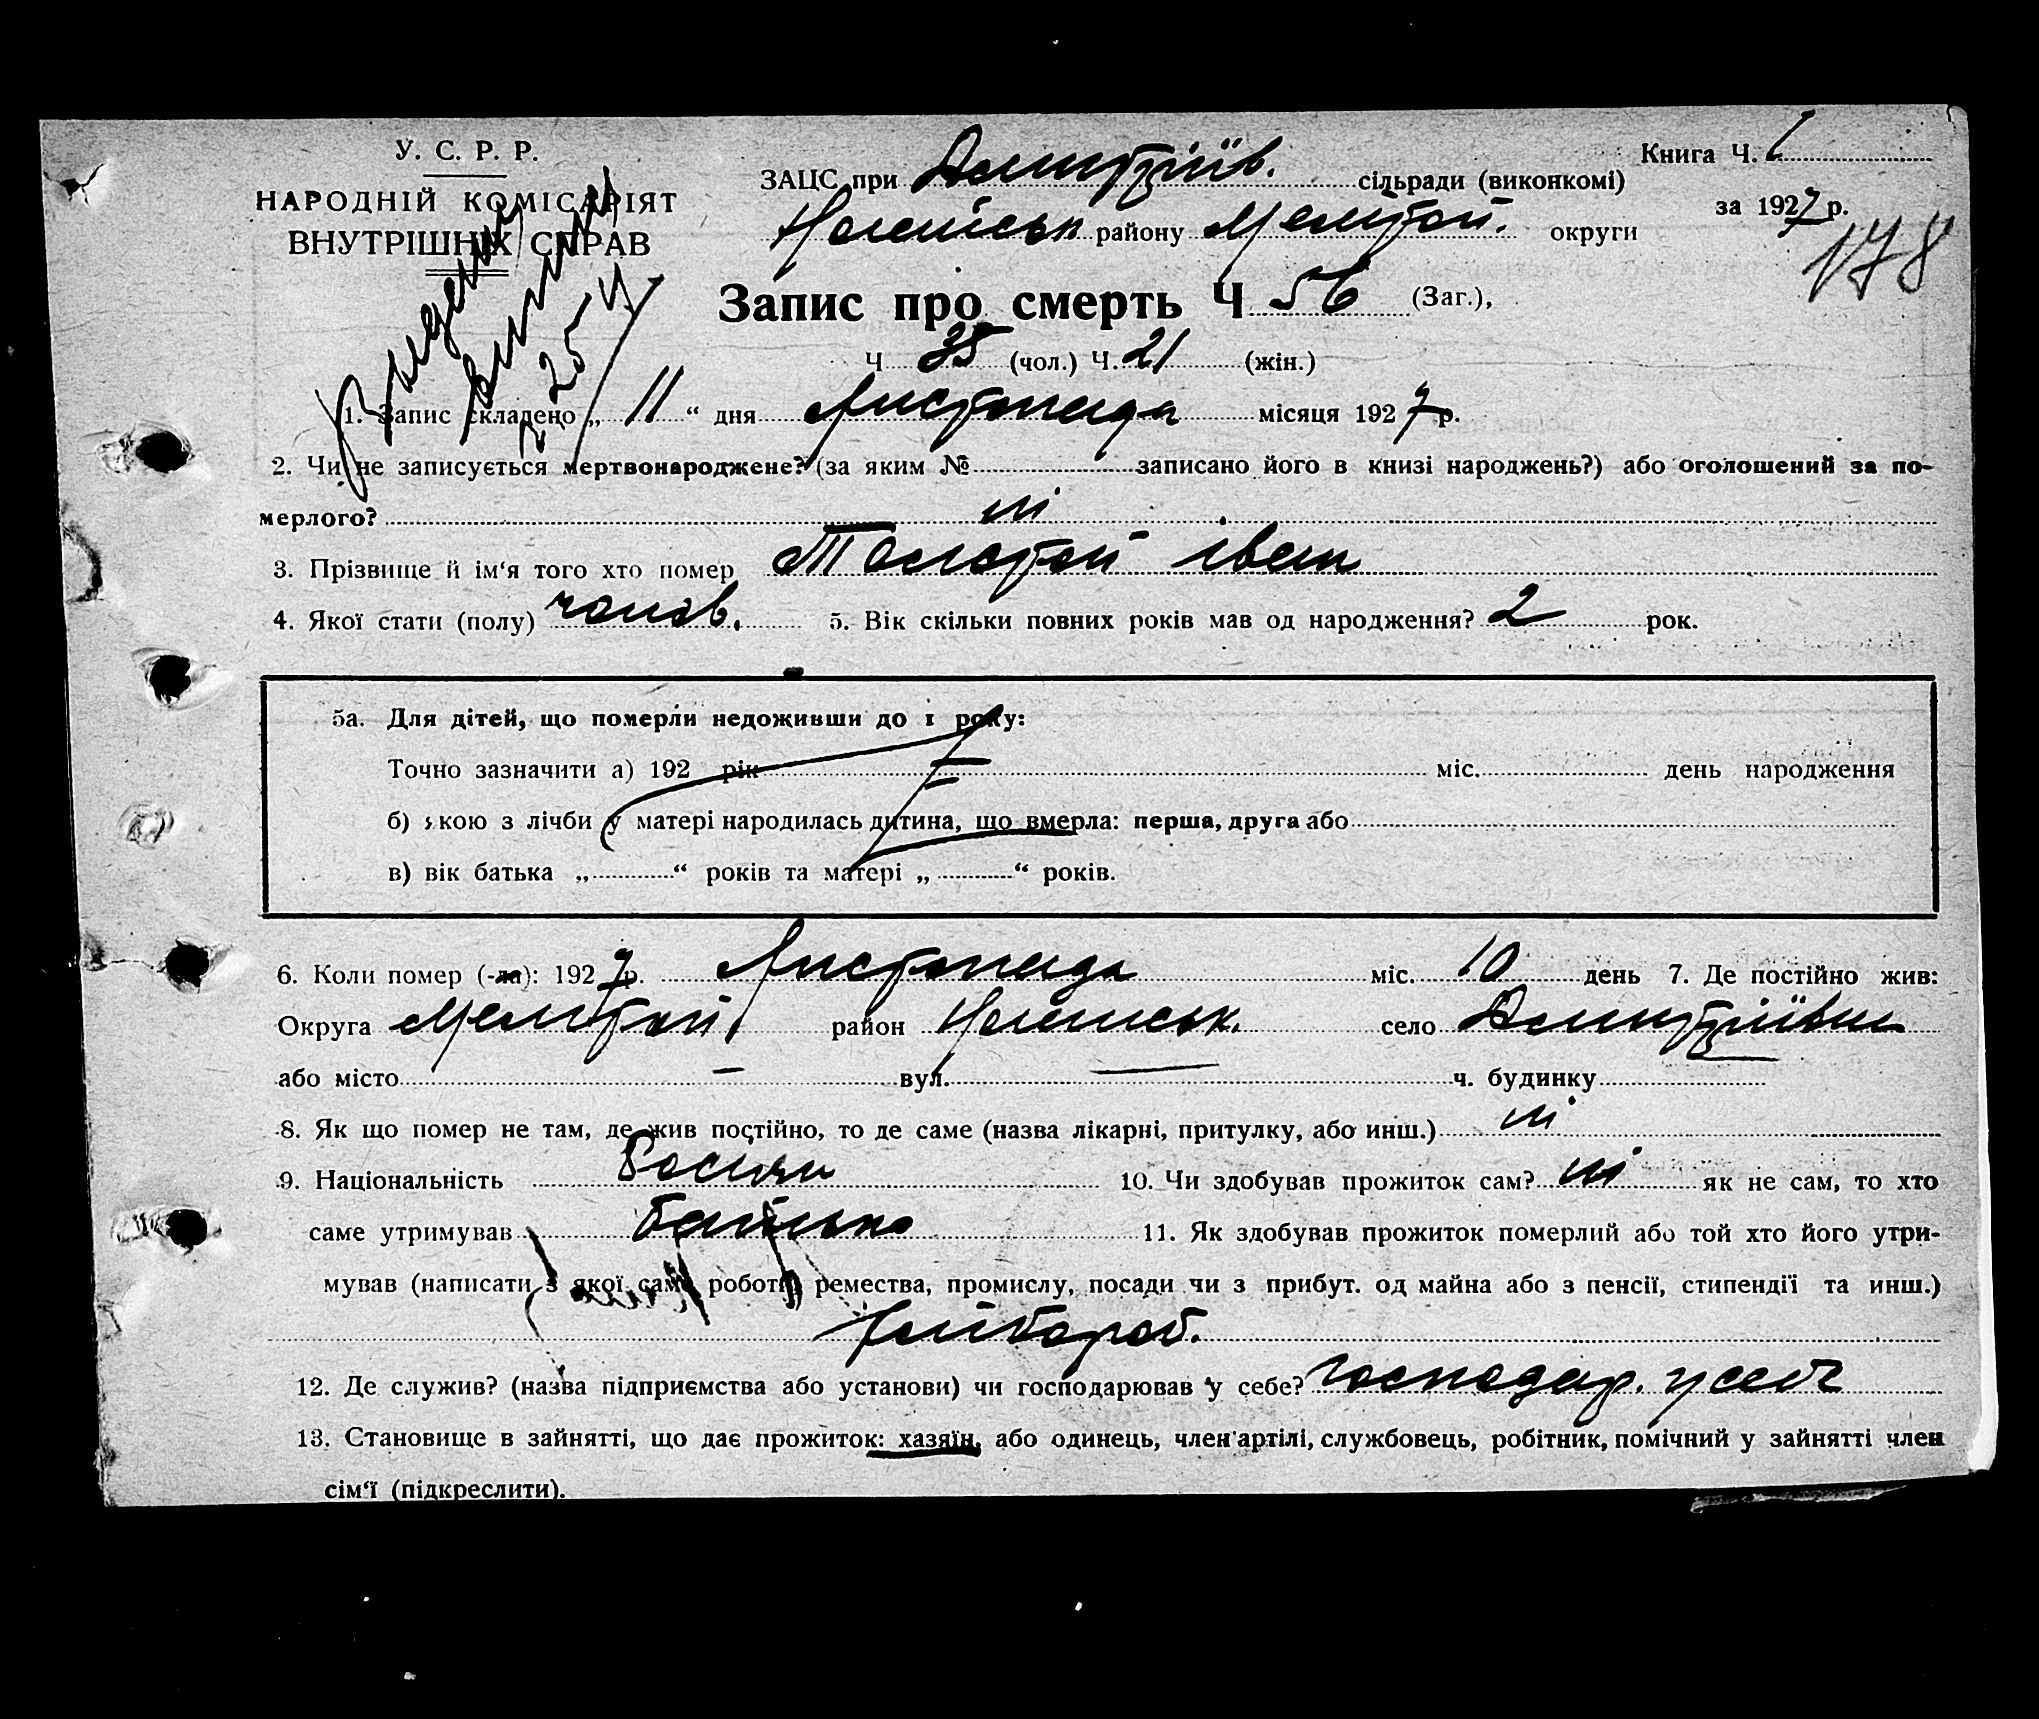 У. С. Р. Р.
НАРОДНІЙ КОМІСАРІЯТ
ВНУТРІШНІХ СПРАВ
ЗАЦС при Дмитріїв. сільради (виконкомі)
Ногайськ району Мелітоп. округи
Книга Ч.
за 1927 р.
178
Запис про смерть Ч 56 (Заг.),
Ч 35 (чол.) Ч. 21 (жін.)
1. Запис складено „ 11 “ дня Листопада місяця 1927 р.
2. Чи не записується мертвонароджене? (за яким № записано його в книзі народжень?) або оголошений за по-
мерлого? ні
3. Прізвище й ім‘я того хто помер Толстой Іван
4. Якої стати (полу) чолов. 5. Вік скільки повних років мав од народження? 2 рок.
5а. Для дітей, що померли недоживши до 1 року:
Точно зазначити а) 192 рік міс. день народження
б) якою з лічби у матері народилась дитина, що вмерла: перша, друга або
в) вік батька „ “ років та матері „ “ років.
6. Коли помер (-ла): 1927 р. Листопада міс. 10 день 7. Де постійно жив:
Округа Мелітоп. район Ногайськ. село Дмитріївки
або місто — вул. — ч. будинку
8. Як що помер не там, де жив постійно, то де саме (назва лікарні, притулку, або инш.) ні
9. Національність 10. Чи здобував прожиток сам? ні як не сам, то хто
саме утримував батько 11. Як здобував прожиток померлий або той хто його утри-
мував (написати з якої саме роботи, ремества, промислу, посади чи з прибут. од майна або з пенсії, стипендії та инш.)
хлібороб.
12. Де служив? (назва підприємства або установи) чи господарював у себе? господар. у себе
13. Становище в зайнятті, що дає прожиток: хазяїн, або одинець, член артілі, службовець, робітник, помічний у зайнятті член
сім‘ї (підкреслити).